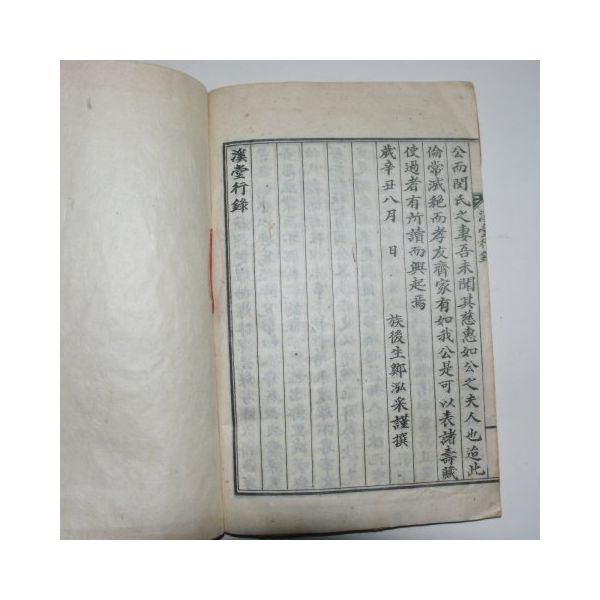 公而閔氏之妻吾未聞其慈惠如公之夫人也迨此
倫常滅絶而孝友齊家有如我公是可以表諸壽藏
使過者有所讀而興起焉
歲辛丑八月 日 族後生鄭泓采謹撰
溪堂行錄
溪堂行錄